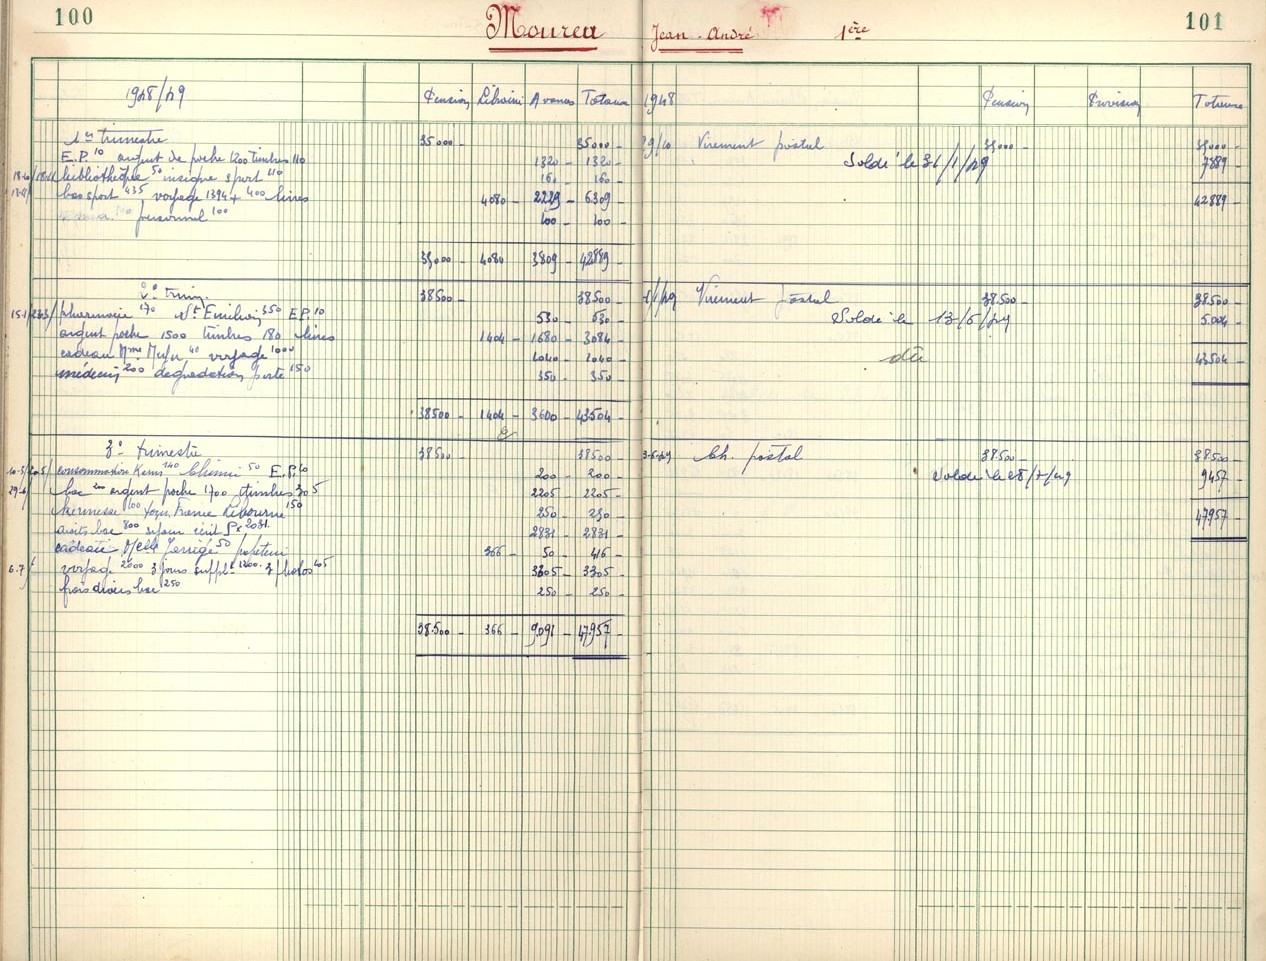 100
Mourea Jean-André 1ère
101
1948/49 Pension Librairie Avances Totaux
1er trimestre 35000 35000 -
E.P. 10 argent de poche 1200 timbres 110 1320 - 1320 -
bibliothèque 50 insigne sport 110 160 - 160 -
bas sport 435 voyage 1394 + 400 livres 4080 2229 - 6309
personnel 100 100 - 100 -
35,000 - 4080 3809 - 42889 -
2e trim. 38500 - 38500 -
pharmacie 170 St Emilion 350 E.P. 10 530 - 530 -
argent poche 1500 timbres 180 livres 1404 - 1680 - 3084 -
cadeau Mme 40 voyage 1000 1040 - 1040 -
médecin 200 dégradation porte 150 350 - 350 -
38500 - 1404 - 3600 - 43504 -
3e trimestre 38500 - 38500 -
consommation 140 Chimie 50 E.P. 10 200 - 200 -
bac 200 argent poche 1700 timbres 305 2205 - 2205 -
kermesse 100 France Libourne 150 250 - 250 -
droits bac 800 séjour écrit 2031 2831 - 2831 -
cadeau Melle 50 366 - 50 416 -
6.7 voyage 2000 3 jours supplts 1200 3 photos 105 3305 - 3305 -
frais divers bac 250 250 - 250 -
38.500 - 366 - 9091 - 47957 -
1948 Pension Provision Totaux
Virement postal 35000 - 35000 -
Soldé le 31/1/49 7889 -
42889 -
Virement postal 38.500 - 38.500 -
Soldé le 13/5/49 5.004 -
dû 43504 -
3-5-49 Ch. postal 38.500 - 38.500 -
Soldé le 28/7/49 9457 -
47957 -